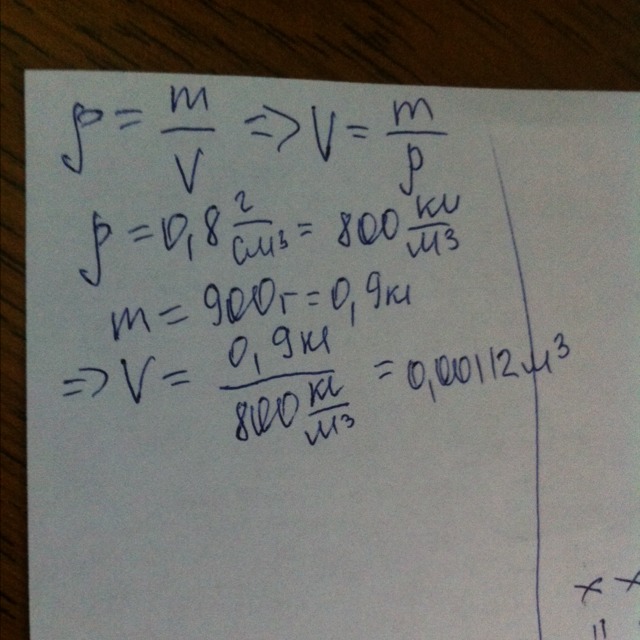 ρ = m/V => V = m/ρ
ρ = 0,8 г/см³ = 800 кг/м³
m = 900г = 0,9кг
=> V = 0,9кг / 800 кг/м³ = 0,00112м³
x x
"